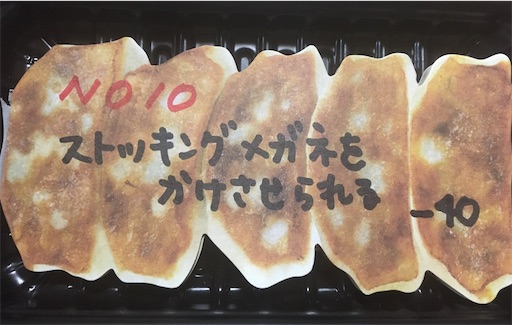 NO10
ストッキングメガネを
かけさせられる
-40